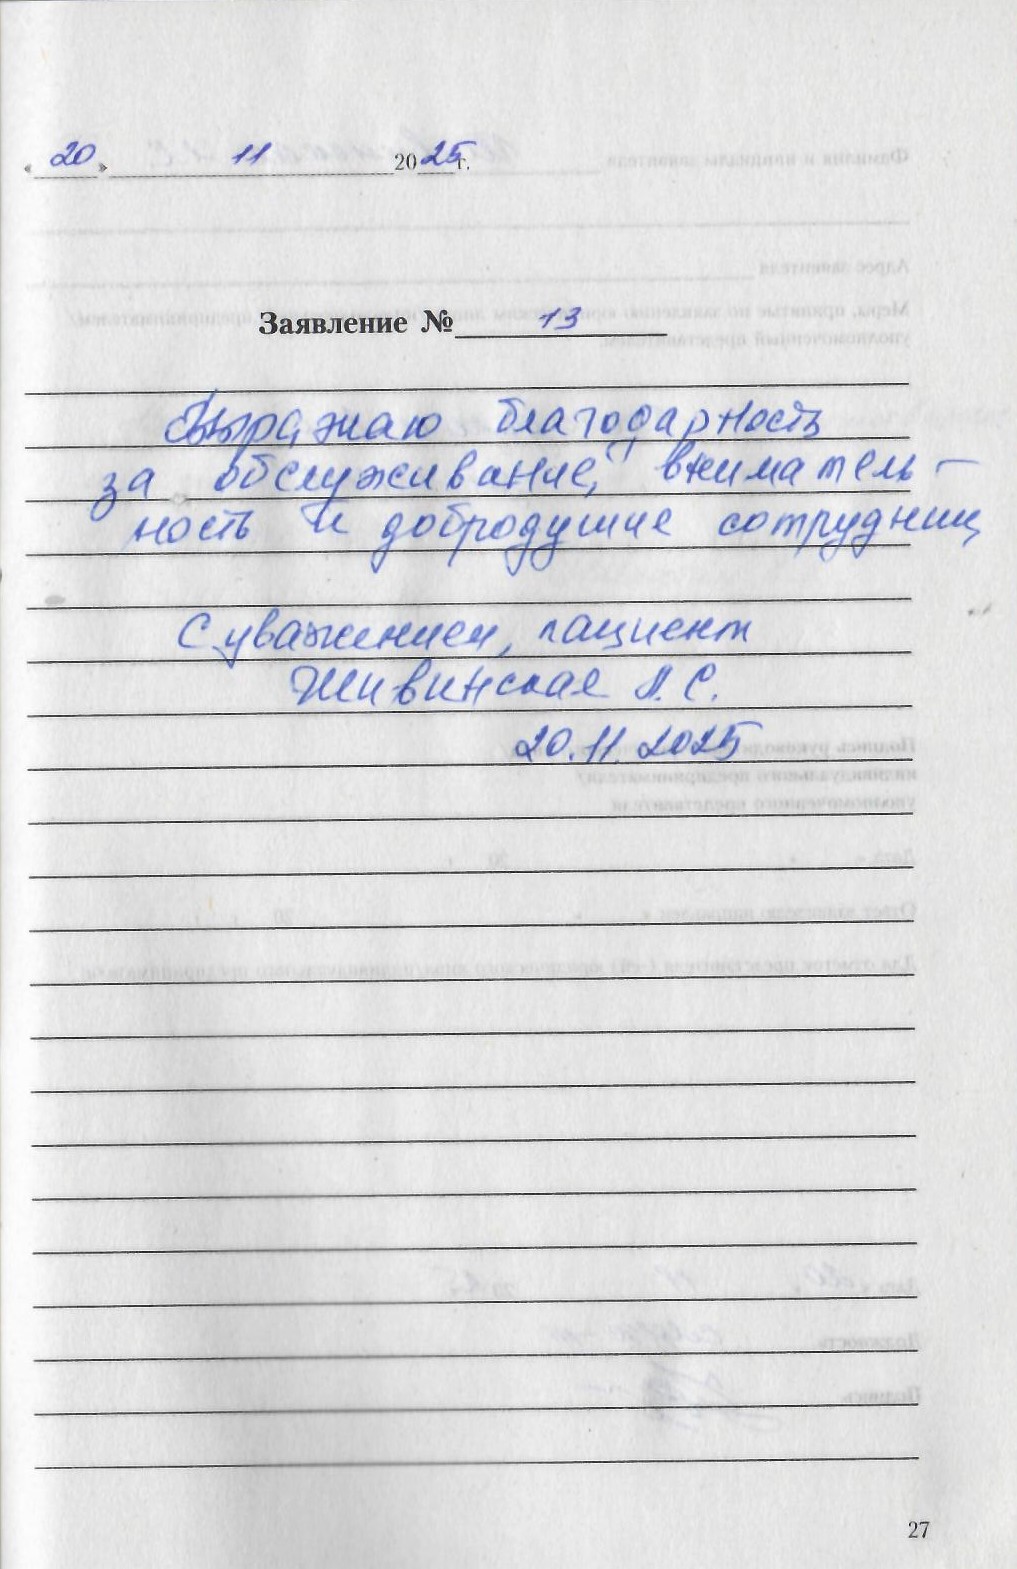 « 20 » 11 2025 г.
Заявление № 13
Выражаю благодарность
за обслуживание, вниматель-
ность и добродушие сотрудниц
С уважением, пациент
Живинская Л. С.
20.11.2025
27